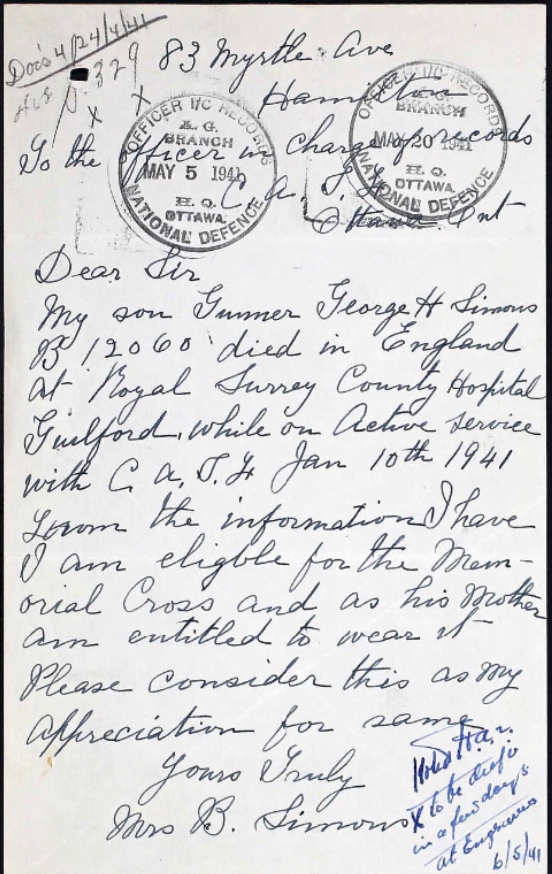 Docs 4/24/4/41
329
x x
83 Myrtle Ave
Hamilton
To the officer in charge of records
C. A. S. F.
Ottawa Ont
OFFICER I/C RECORDS
A. G.
BRANCH
MAY 5 1941
H. Q.
OTTAWA
NATIONAL DEFENCE
OFFICER I/C RECORDS
A. G.
BRANCH
MAY 20 1941
H. Q.
OTTAWA
NATIONAL DEFENCE
Dear Sir
My son Gunner George H Simons
B 12060 died in England
at Royal Surrey County Hospital
Guilford, while on Active service
with C. A. S. F. Jan 10th 1941
From the information I have
I am eligble for the Mem-
orial Cross and as his Mother
am entitled to wear it
Please consider this as my
appreciation for same
Yours Truly
Mrs B. Simons
X to be
in a few days
at Engravers
6/5/41